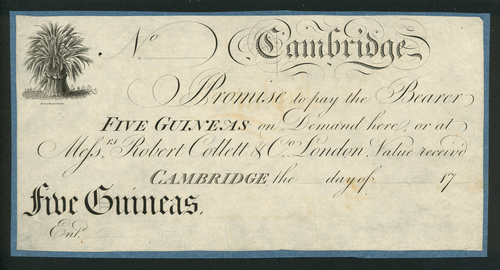 No Cambridge
I Promise to pay the Bearer
FIVE GUINEAS on Demand here, or at
Mess.rs Robert Collett & Co. London. Value received
CAMBRIDGE the day of 17
Five Guineas.
Ent.